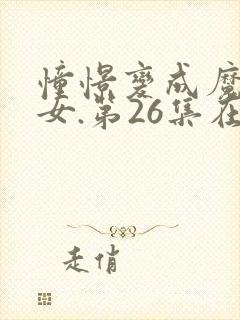 憧憬變成魔
女.第26集在
走俏